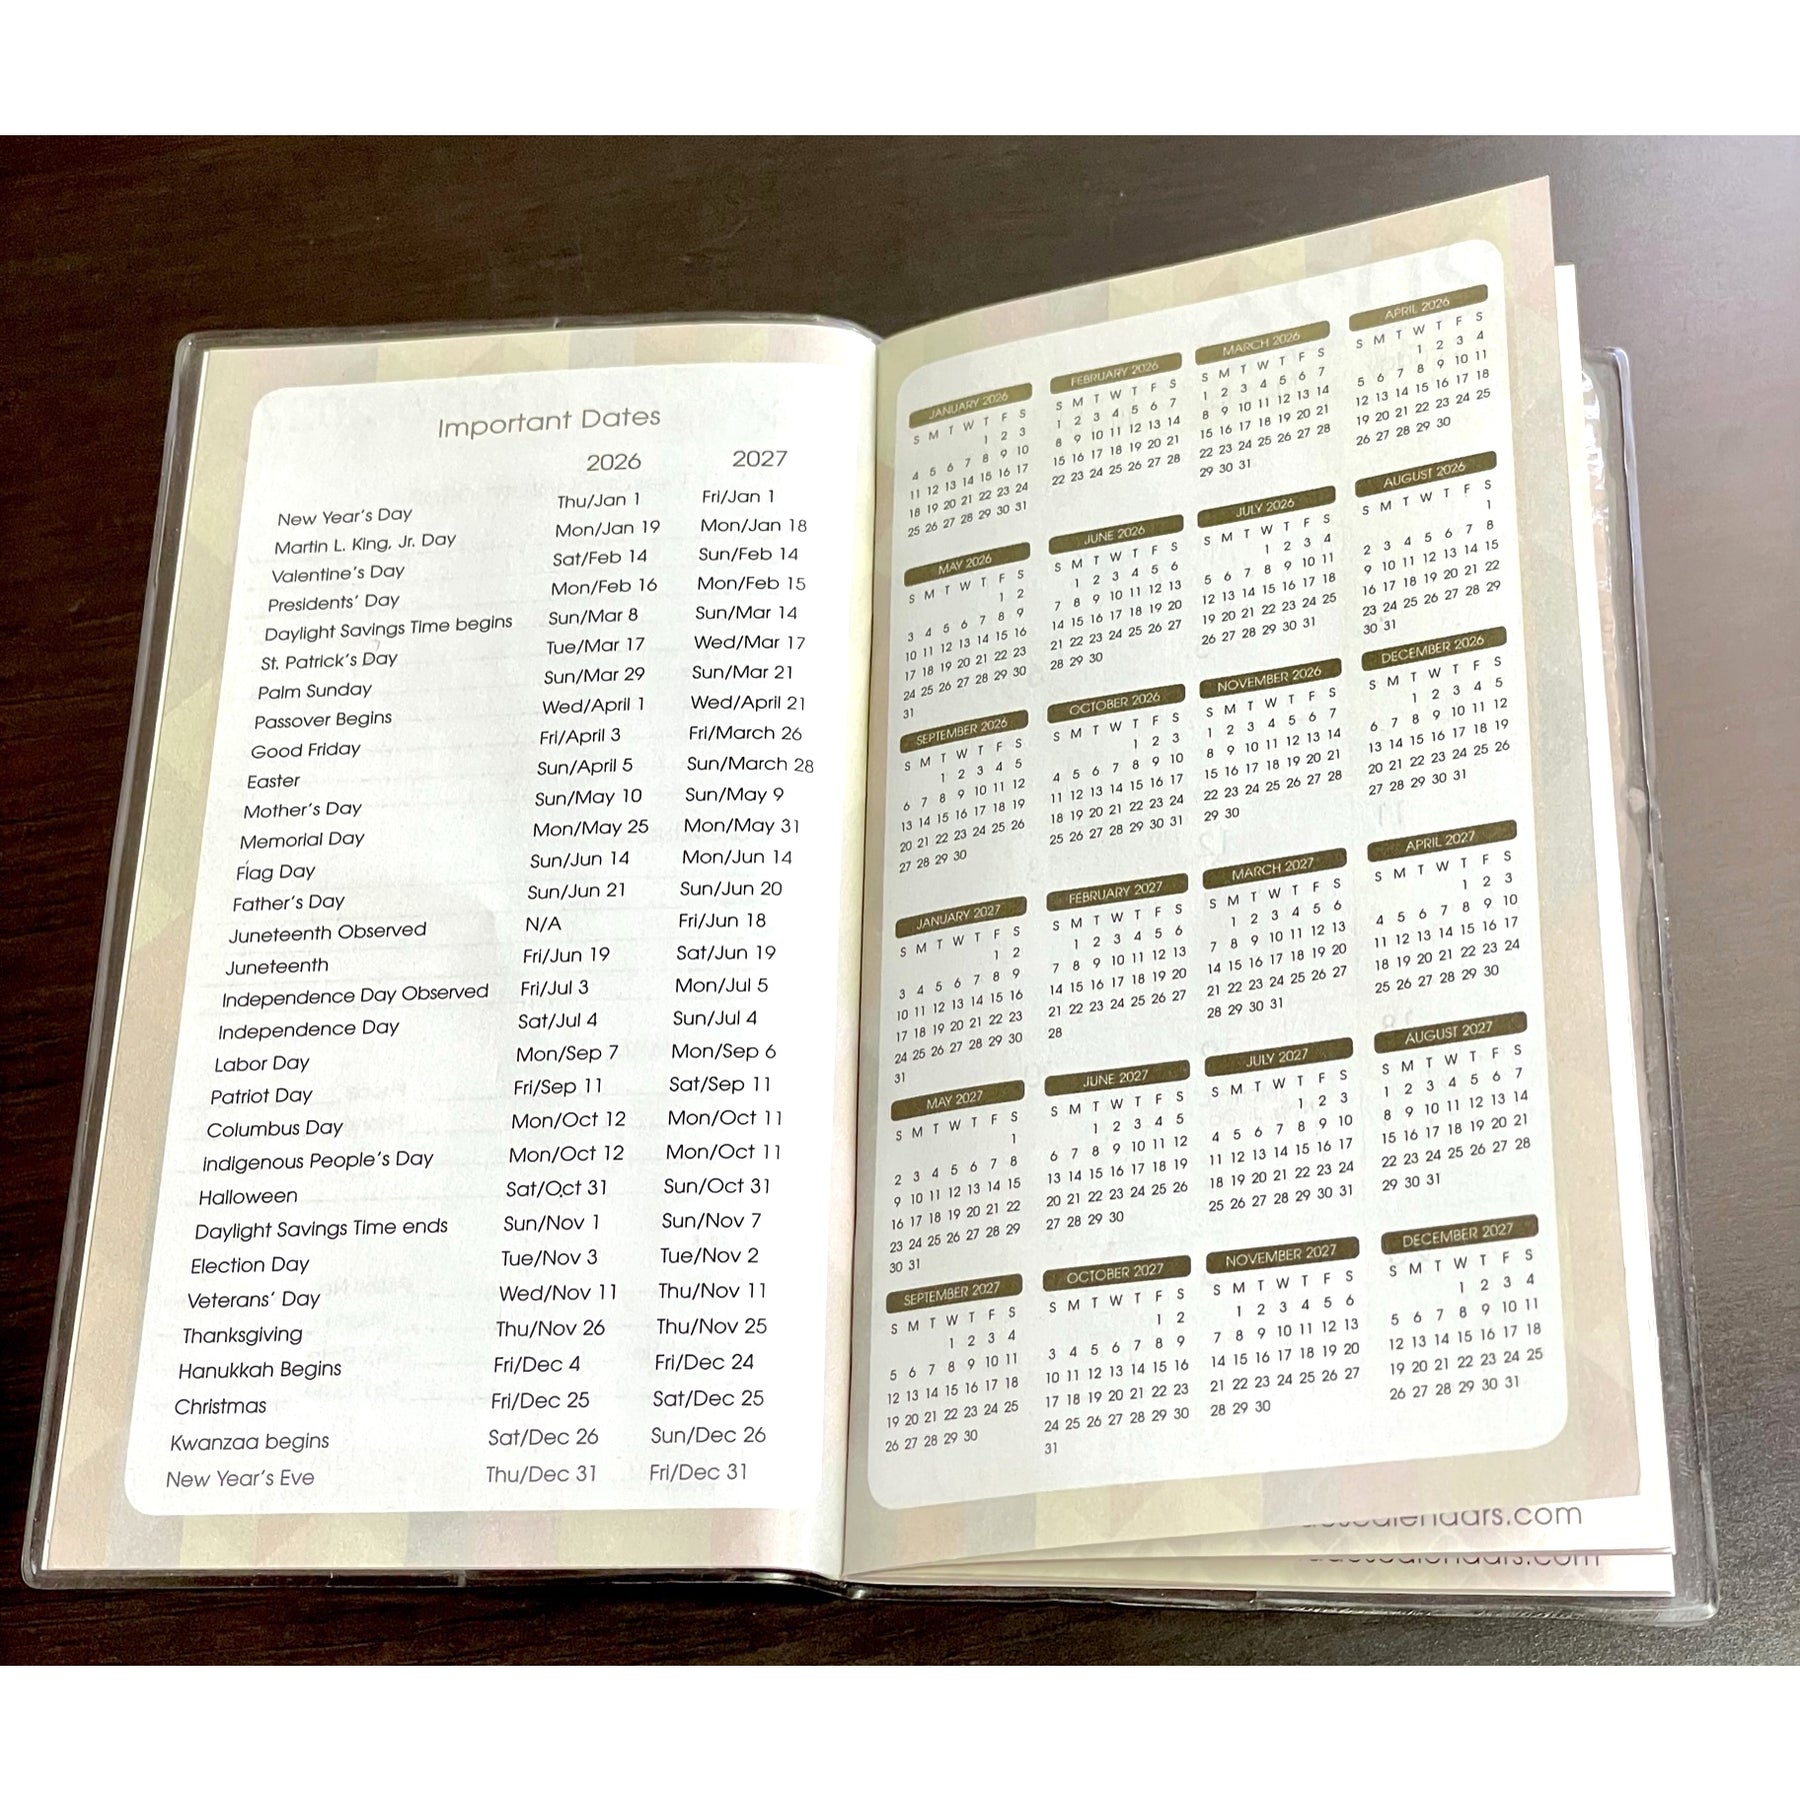 Important Dates
2026 2027
New Year's Day Thu/Jan 1 Fri/Jan 1
Martin L. King, Jr. Day Mon/Jan 19 Mon/Jan 18
Valentine's Day Sat/Feb 14 Sun/Feb 14
Presidents' Day Mon/Feb 16 Mon/Feb 15
Daylight Savings Time begins Sun/Mar 8 Sun/Mar 14
St. Patrick's Day Tue/Mar 17 Wed/Mar 17
Palm Sunday Sun/Mar 29 Sun/Mar 21
Passover Begins Wed/April 1 Wed/April 21
Good Friday Fri/April 3 Fri/March 26
Easter Sun/April 5 Sun/March 28
Mother's Day Sun/May 10 Sun/May 9
Memorial Day Mon/May 25 Mon/May 31
Flag Day Sun/Jun 14 Mon/Jun 14
Father's Day Sun/Jun 21 Sun/Jun 20
Juneteenth Observed N/A Fri/Jun 18
Juneteenth Fri/Jun 19 Sat/Jun 19
Independence Day Observed Fri/Jul 3 Mon/Jul 5
Independence Day Sat/Jul 4 Sun/Jul 4
Labor Day Mon/Sep 7 Mon/Sep 6
Patriot Day Fri/Sep 11 Sat/Sep 11
Columbus Day Mon/Oct 12 Mon/Oct 11
Indigenous People's Day Mon/Oct 12 Mon/Oct 11
Halloween Sat/Oct 31 Sun/Oct 31
Daylight Savings Time ends Sun/Nov 1 Sun/Nov 7
Election Day Tue/Nov 3 Tue/Nov 2
Veterans' Day Wed/Nov 11 Thu/Nov 11
Thanksgiving Thu/Nov 26 Thu/Nov 25
Hanukkah Begins Fri/Dec 4 Fri/Dec 24
Christmas Fri/Dec 25 Sat/Dec 25
Kwanzaa begins Sat/Dec 26 Sun/Dec 26
New Year's Eve Thu/Dec 31 Fri/Dec 31
JANUARY 2026
S M T W T F S
1 2 3
4 5 6 7 8 9 10
11 12 13 14 15 16 17
18 19 20 21 22 23 24
25 26 27 28 29 30 31
FEBRUARY 2026
S M T W T F S
1 2 3 4 5 6 7
8 9 10 11 12 13 14
15 16 17 18 19 20 21
22 23 24 25 26 27 28
MARCH 2026
S M T W T F S
1 2 3 4 5 6 7
8 9 10 11 12 13 14
15 16 17 18 19 20 21
22 23 24 25 26 27 28
29 30 31
APRIL 2026
S M T W T F S
1 2 3 4
5 6 7 8 9 10 11
12 13 14 15 16 17 18
19 20 21 22 23 24 25
26 27 28 29 30
MAY 2026
S M T W T F S
1 2
3 4 5 6 7 8 9
10 11 12 13 14 15 16
17 18 19 20 21 22 23
24 25 26 27 28 29 30
31
JUNE 2026
S M T W T F S
1 2 3 4 5 6
7 8 9 10 11 12 13
14 15 16 17 18 19 20
21 22 23 24 25 26 27
28 29 30
JULY 2026
S M T W T F S
1 2 3 4
5 6 7 8 9 10 11
12 13 14 15 16 17 18
19 20 21 22 23 24 25
26 27 28 29 30 31
AUGUST 2026
S M T W T F S
1
2 3 4 5 6 7 8
9 10 11 12 13 14 15
16 17 18 19 20 21 22
23 24 25 26 27 28 29
30 31
SEPTEMBER 2026
S M T W T F S
1 2 3 4 5
6 7 8 9 10 11 12
13 14 15 16 17 18 19
20 21 22 23 24 25 26
27 28 29 30
OCTOBER 2026
S M T W T F S
1 2 3
4 5 6 7 8 9 10
11 12 13 14 15 16 17
18 19 20 21 22 23 24
25 26 27 28 29 30 31
NOVEMBER 2026
S M T W T F S
1 2 3 4 5 6 7
8 9 10 11 12 13 14
15 16 17 18 19 20 21
22 23 24 25 26 27 28
29 30
DECEMBER 2026
S M T W T F S
1 2 3 4 5
6 7 8 9 10 11 12
13 14 15 16 17 18 19
20 21 22 23 24 25 26
27 28 29 30 31
JANUARY 2027
S M T W T F S
1 2
3 4 5 6 7 8 9
10 11 12 13 14 15 16
17 18 19 20 21 22 23
24 25 26 27 28 29 30
31
FEBRUARY 2027
S M T W T F S
1 2 3 4 5 6
7 8 9 10 11 12 13
14 15 16 17 18 19 20
21 22 23 24 25 26 27
28
MARCH 2027
S M T W T F S
1 2 3 4 5 6
7 8 9 10 11 12 13
14 15 16 17 18 19 20
21 22 23 24 25 26 27
28 29 30 31
APRIL 2027
S M T W T F S
1 2 3
4 5 6 7 8 9 10
11 12 13 14 15 16 17
18 19 20 21 22 23 24
25 26 27 28 29 30
MAY 2027
S M T W T F S
1
2 3 4 5 6 7 8
9 10 11 12 13 14 15
16 17 18 19 20 21 22
23 24 25 26 27 28 29
30 31
JUNE 2027
S M T W T F S
1 2 3 4 5
6 7 8 9 10 11 12
13 14 15 16 17 18 19
20 21 22 23 24 25 26
27 28 29 30
JULY 2027
S M T W T F S
1 2 3
4 5 6 7 8 9 10
11 12 13 14 15 16 17
18 19 20 21 22 23 24
25 26 27 28 29 30 31
AUGUST 2027
S M T W T F S
1 2 3 4 5 6 7
8 9 10 11 12 13 14
15 16 17 18 19 20 21
22 23 24 25 26 27 28
29 30 31
SEPTEMBER 2027
S M T W T F S
1 2 3 4
5 6 7 8 9 10 11
12 13 14 15 16 17 18
19 20 21 22 23 24 25
26 27 28 29 30
OCTOBER 2027
S M T W T F S
1 2
3 4 5 6 7 8 9
10 11 12 13 14 15 16
17 18 19 20 21 22 23
24 25 26 27 28 29 30
31
NOVEMBER 2027
S M T W T F S
1 2 3 4 5 6
7 8 9 10 11 12 13
14 15 16 17 18 19 20
21 22 23 24 25 26 27
28 29 30
DECEMBER 2027
S M T W T F S
1 2 3 4
5 6 7 8 9 10 11
12 13 14 15 16 17 18
19 20 21 22 23 24 25
26 27 28 29 30 31